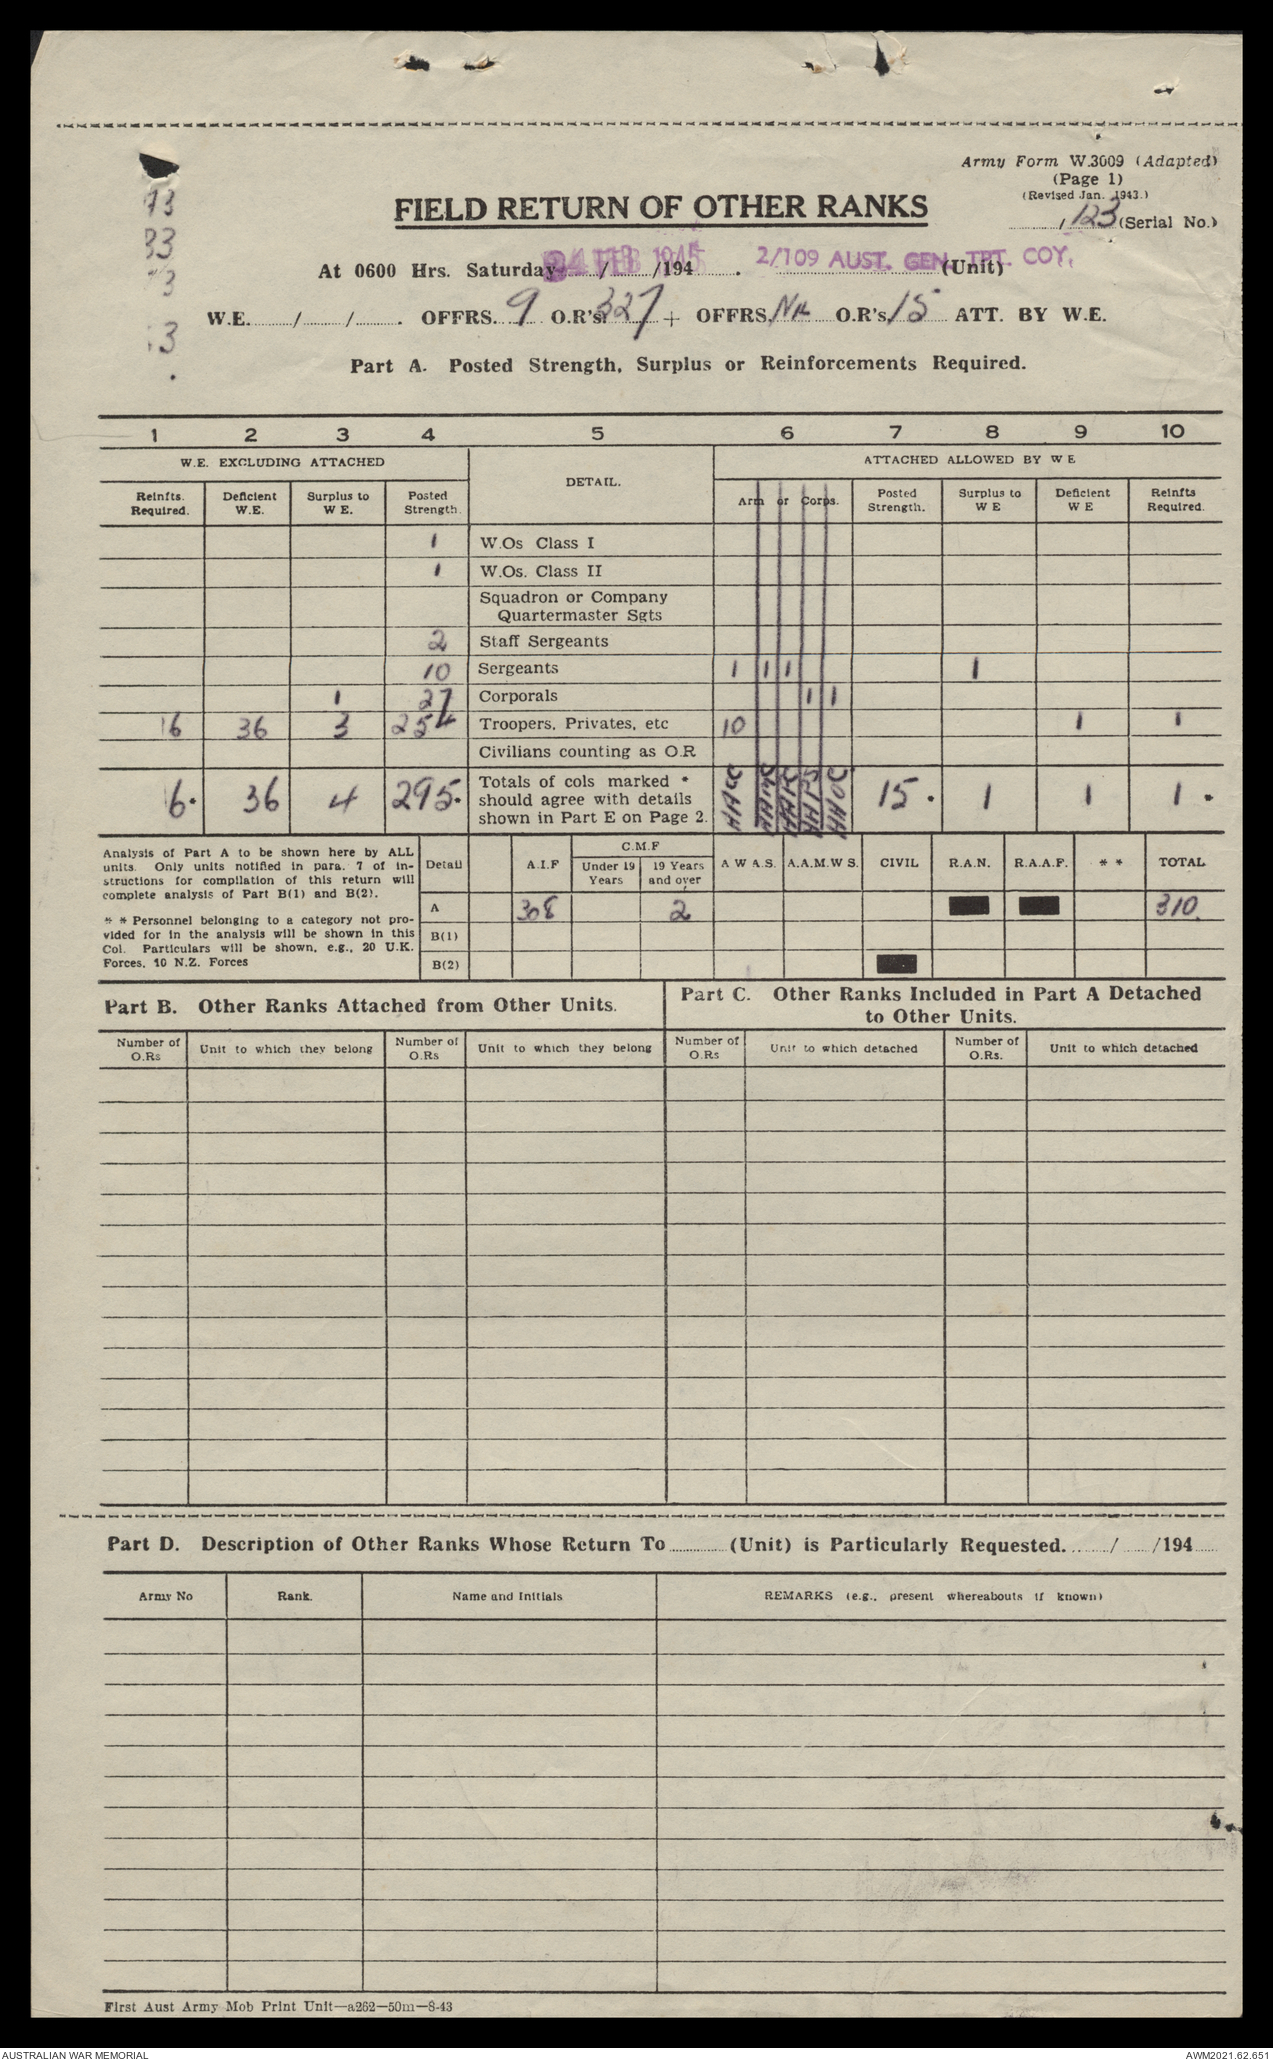 Army Form W.3009 (Adapted)
(Page 1)
(Revised Jan. 1943.)
FIELD RETURN OF OTHER RANKS
/ 123 (Serial No.)
93
33
3
3
At 0600 Hrs. Saturday 24 FEB 1945 /194 . 2/109 AUST. GEN. TPT. COY. (Unit)
W.E. / / . OFFRS. 9 O.R's. 327 + OFFRS. NIL O.R's. 15 ATT. BY W.E.
Part A. Posted Strength, Surplus or Reinforcements Required.
1 2 3 4 5 6 7 8 9 10
W.E. EXCLUDING ATTACHED DETAIL. ATTACHED ALLOWED BY W E
Reinfts. Required. Deficient W.E. Surplus to W E. Posted Strength. Arm or Corps. Posted Strength. Surplus to W E Deficient W E Reinfts Required.
1 W.Os Class I
1 W.Os. Class II
Squadron or Company
Quartermaster Sgts
2 Staff Sergeants
10 Sergeants 1 1 1 1
1 27 Corporals 1 1
16 36 3 254 Troopers, Privates, etc 10 1 1
Civilians counting as O.R
6. 36 4 295. Totals of cols marked * should agree with details shown in Part E on Page 2. 15. 1 1 1.
Analysis of Part A to be shown here by ALL
units. Only units notified in para. 7 of in-
structions for compilation of this return will
complete analysis of Part B(1) and B(2).
* * Personnel belonging to a category not pro-
vided for in the analysis will be shown in this
Col. Particulars will be shown, e.g., 20 U.K.
Forces, 10 N.Z. Forces
Detail A.I.F C.M.F Under 19 Years 19 Years and over A W A.S. A.A.M.W S. CIVIL R.A.N. R.A.A.F. * * TOTAL
A 308 2 310.
B(1)
B(2)
Part B. Other Ranks Attached from Other Units.
Part C. Other Ranks Included in Part A Detached
to Other Units.
Number of O.Rs Unit to which they belong Number of O.Rs Unit to which they belong Number of O.Rs Unit to which detached Number of O.Rs. Unit to which detached
Part D. Description of Other Ranks Whose Return To (Unit) is Particularly Requested. / /194
Army No Rank. Name and Initials REMARKS (e.g., present whereabouts if known)
First Aust Army Mob Print Unit—a262—50m—8-43
AUSTRALIAN WAR MEMORIAL AWM2021.62.651